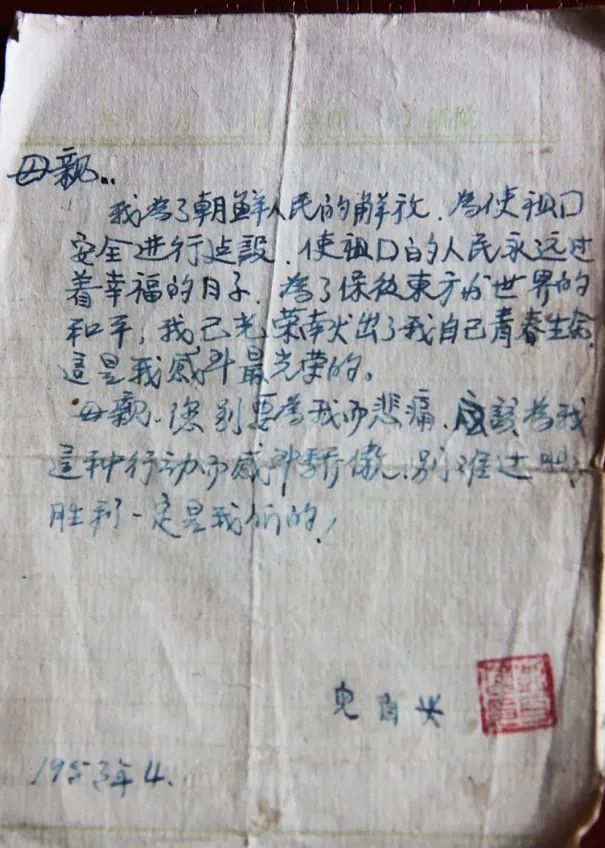 母親..
我為了朝鮮人民的解放.為使祖囗
安全進行建設.使祖囗的人民永远过
着幸福的日子.為了保衛東方的世界的
和平,我已光荣出了我自己青春生命.
這是我感到最光荣的。
母親.您别要為我而悲痛.应該為我
這种行动而感到驕傲.别难过吧.
胜利一定是我们的!
兒
1953年4.